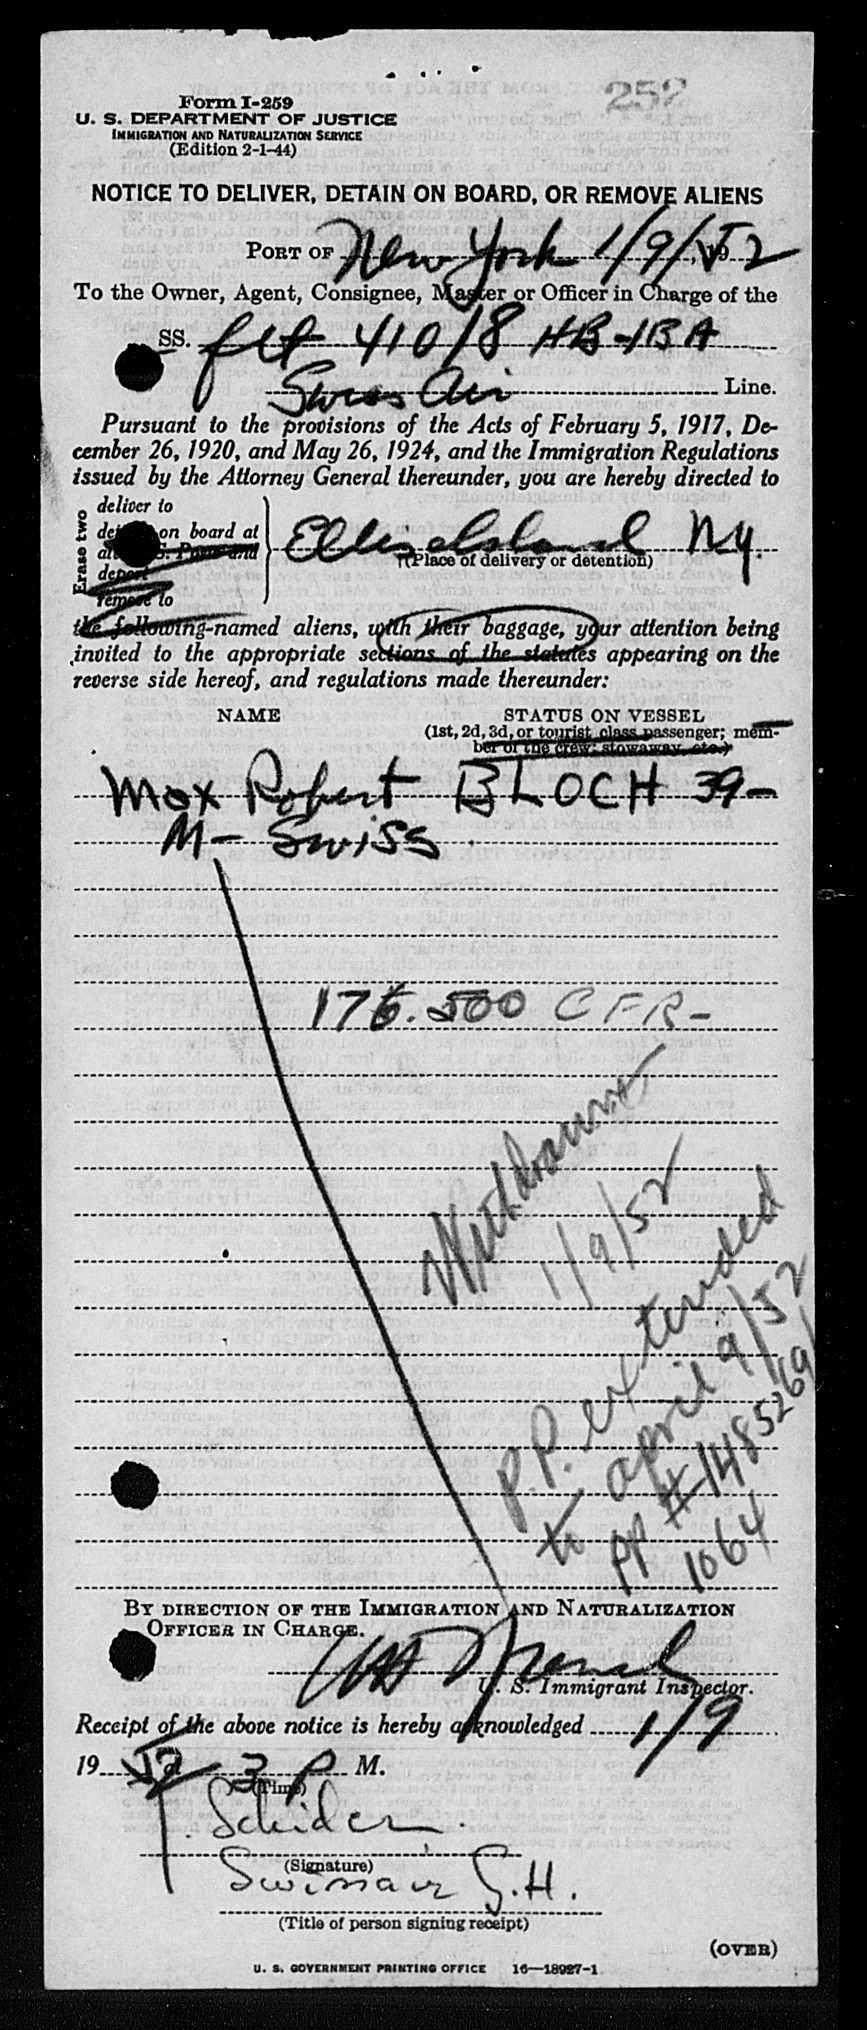 252
Form I-259
U. S. DEPARTMENT OF JUSTICE
IMMIGRATION AND NATURALIZATION SERVICE
(Edition 2-1-44)
NOTICE TO DELIVER, DETAIN ON BOARD, OR REMOVE ALIENS
PORT OF New York 1/9/, 1952
To the Owner, Agent, Consignee, Master or Officer in Charge of the
SS. flt 410/8 HB-IBA
Swiss Air Line.
Pursuant to the provisions of the Acts of February 5, 1917, De-
cember 26, 1920, and May 26, 1924, and the Immigration Regulations
issued by the Attorney General thereunder, you are hereby directed to
Erase two
deliver to
on board at
S. Ports and
deport
remove to
Ellis Island N.Y.
(Place of delivery or detention)
the following-named aliens, with their baggage, your attention being
invited to the appropriate sections of the statutes appearing on the
reverse side hereof, and regulations made thereunder:
NAME STATUS ON VESSEL
(1st, 2d, 3d, or tourist class passenger; mem-
ber of the crew; stowaway, etc.)
Max Robert BLOCH 39-
M- Swiss
175.500 CFR-
Withdrawn
1/9/52
P.P. extended
to april 9/52
PP #1485269/
1064
BY DIRECTION OF THE IMMIGRATION AND NATURALIZATION
OFFICER IN CHARGE.
U. S. Immigrant Inspector.
Receipt of the above notice is hereby acknowledged 1/9
19 52 at 3 P M.
(Time)
(Signature)
Swissair G.H.
(Title of person signing receipt)
(OVER)
U. S. GOVERNMENT PRINTING OFFICE 16—18927-1